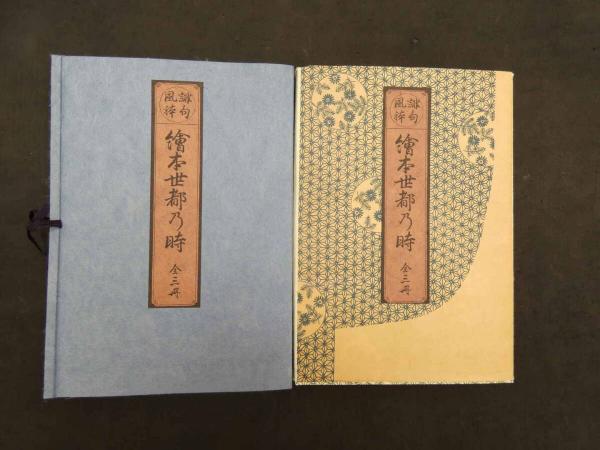 俳句
風体
繪本世都乃時
全三冊
俳句
風体
繪本世都乃時
全三冊